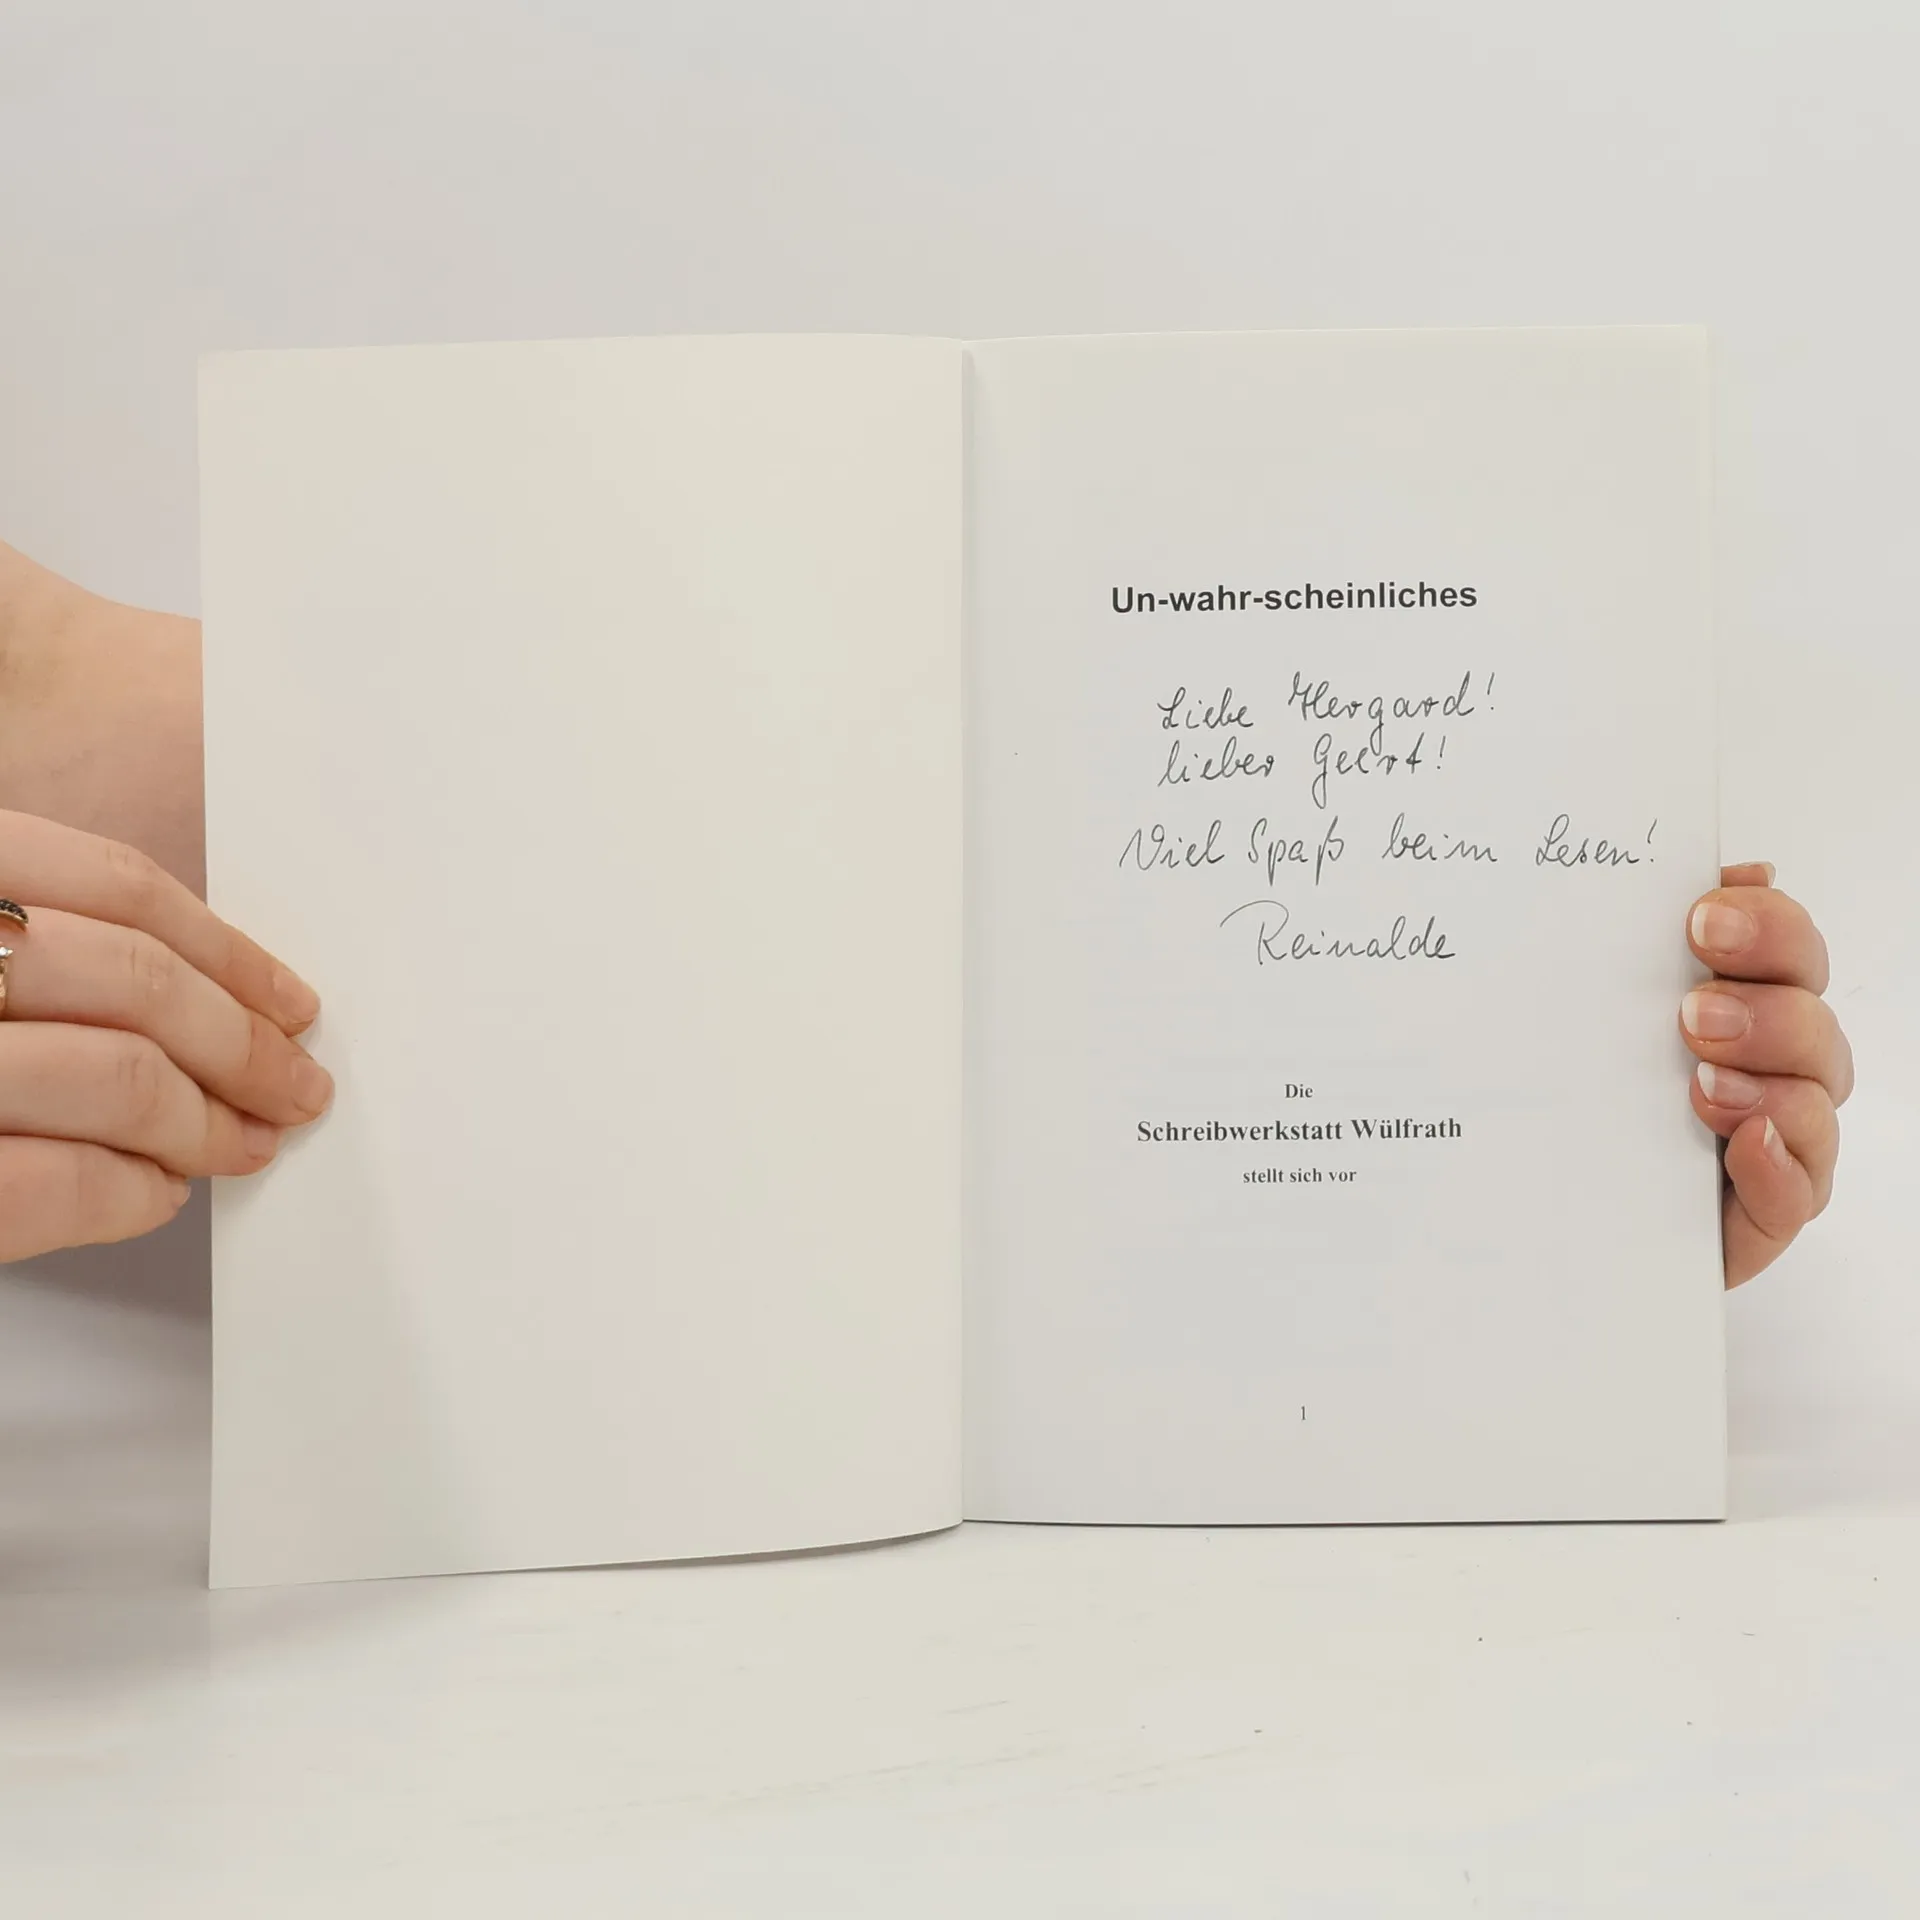 Un-wahr-scheinliches
Liebe Hergard!
lieber Geert!
Viel Spaß beim Lesen!
Reinalde
Die
Schreibwerkstatt Wülfrath
stellt sich vor
1